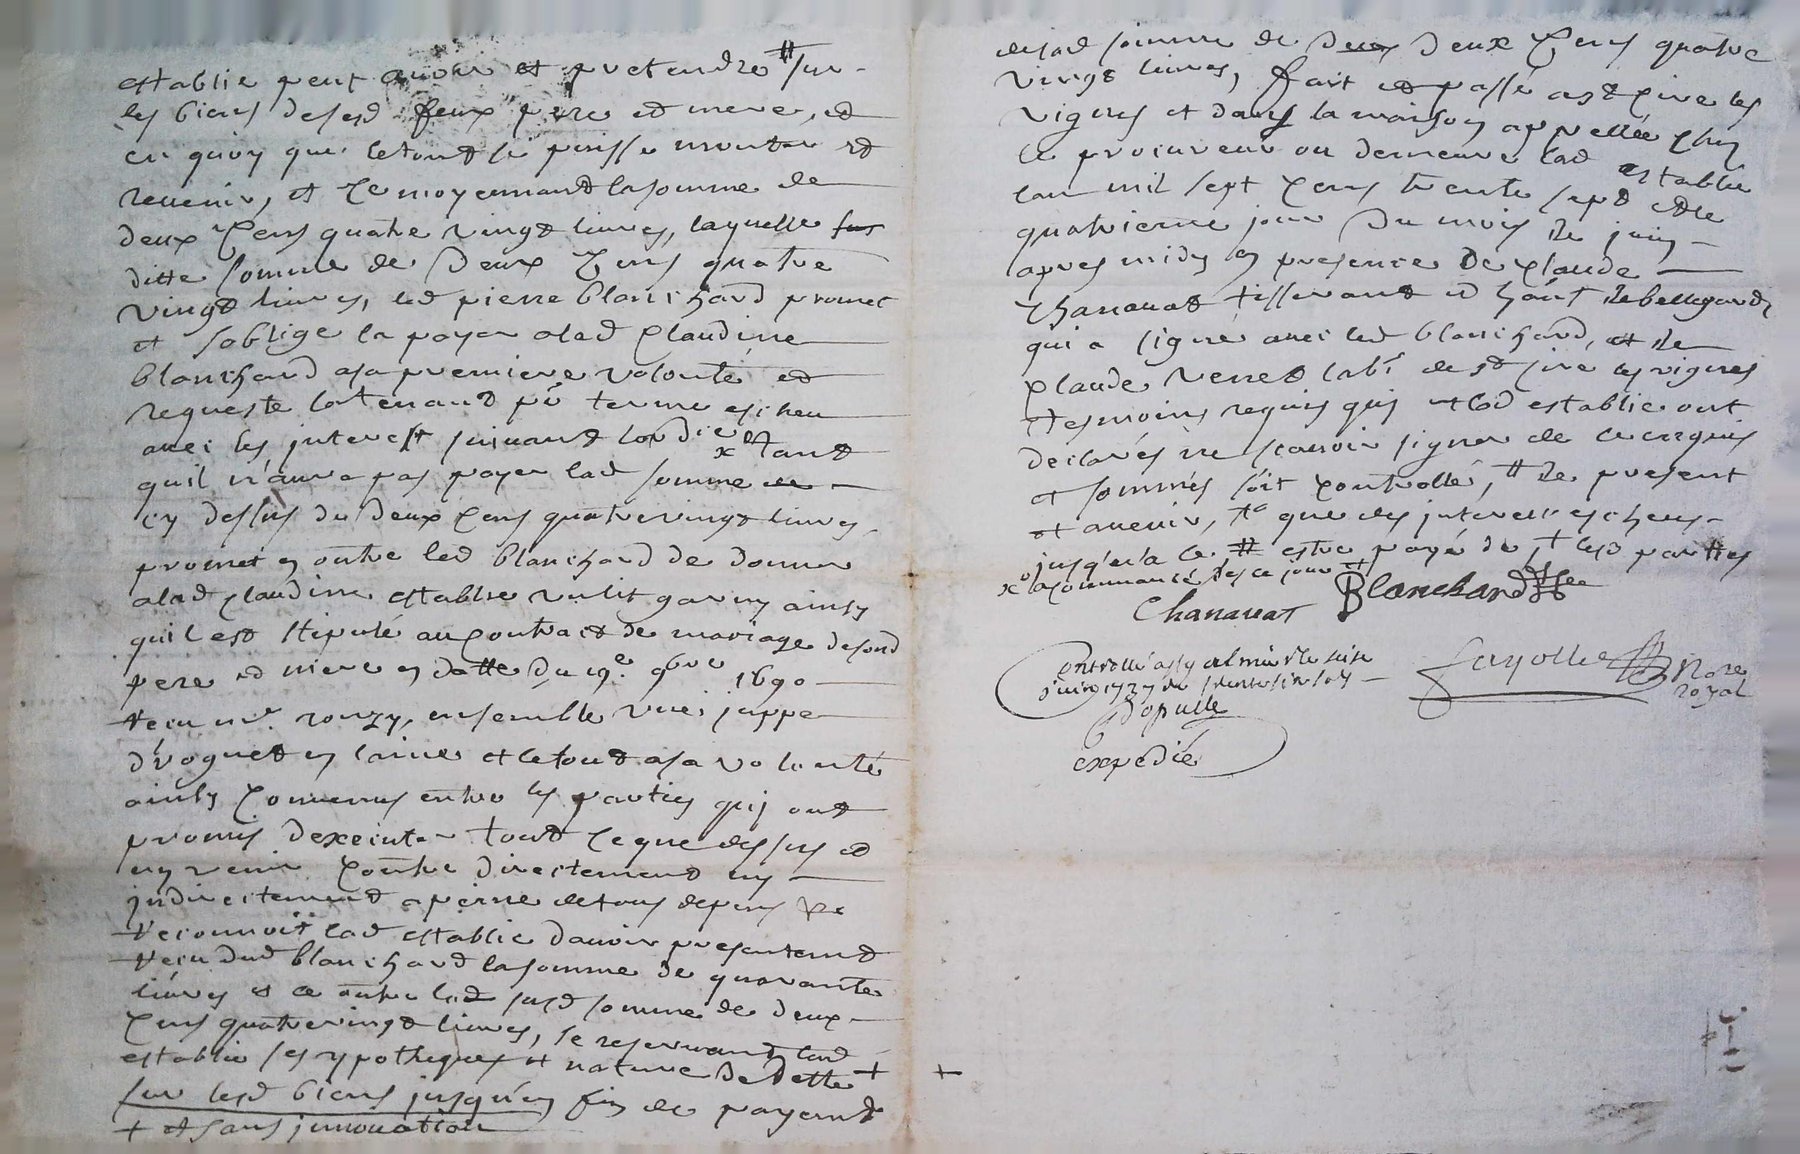 establie peut avoir et pretendre # sur
les biens desd feux pere et mere, et
en quoy que le tout se puisse monter et
revenir, et ce moyennant la somme de
deux cens quatre vingt livres, laquelle sus
ditte somme de deux cens quatre
vingt livres, led pierre blanchard promet
et soblige la payer alad claudine
blanchard asa premiere volonté et
requeste latenant pr terme escheu
avec les interest suivant lordce x tant
quil naura pas payer lad somme de
cy dessus de deux cens quatrevingt livres
promet en outre led blanchard de donner
alad claudine establie un lit garny ainsy
quil est stipulé au contract de mariage desond
pere et mere en datte du 19e 9bre 1690
receu me rouzy, ensemble une juppe
droguet en laine et le tout asa volonté
ainsy convenus entre les parties quj ont
promis dexecuter tout ce que dessus et
ny venir contre directement ny
jndirectement a peine de tous depens
reconnoit lad establie davoir presentemt
receu dud blanchard la somme de quarante
livres et ce outre lad susd somme de deux
cens quatrevingt livres, se reservant lad
establie ses ypotheques et nature de dette +
sur lesd biens jusqu'en fin de payemt
+ et sans jnnovation
+
desad somme de deux deux cens quatre
vingt livres, fait et passé a st cire les
vignes et dans la maison appellée chez
le procureur ou demeure lad establie
lan mil sept cens trente sept et le
quatrieme jour du mois de juin
apres midy en presence de claude
Chanavat tisserant et hant de bellegarde
qui a signé avec led blanchard, et de
claude verret labr de st cire les vignes
tesmoins requis quj et lad establie ont
declarés ne scavoir signer de ce enquis
et sommés soit controllé, # de present
et avenir, ta que des jnterest escheus
jusqu'a ce # estre payé de + lesd parties
x a commancé des ce jour
Chanavat Blanchard
Controllé a st galmier le seise
juin 1737
Dopulle
expedié
fayolle Nore
royal